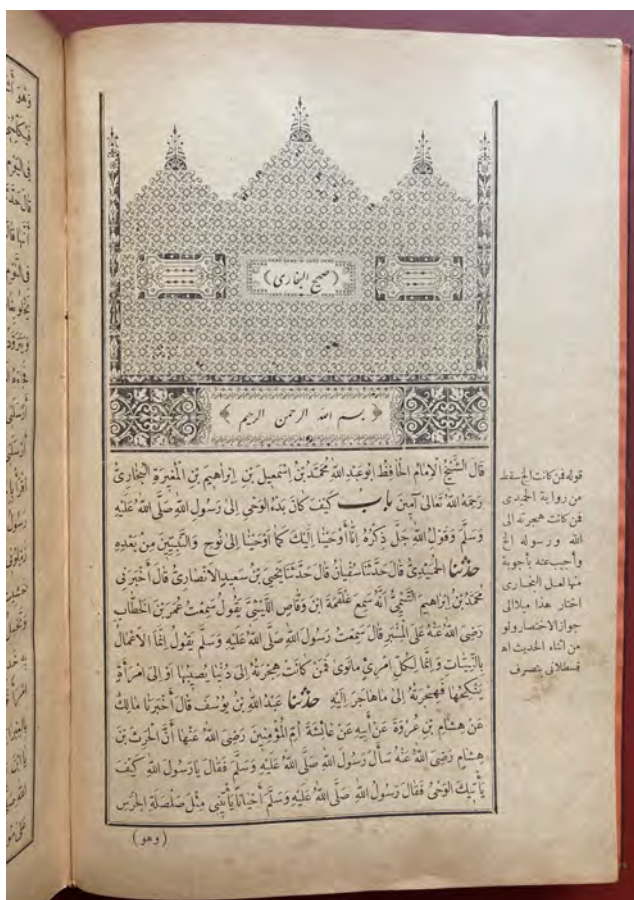 (صحيح البخارى)
﴿ بسم الله الرحمن الرحيم ﴾
قَالَ الشَّيْخُ الْاِمَامُ الْحَافِظُ اَبُو عَبْدِ اللّٰهِ مُحَمَّدُ بْنُ اِسْمٰعِيلَ بْنِ اِبْرَاهِيمَ بْنِ الْمُغِيرَةِ الْبُخَارِىُّ
رَحِمَهُ اللّٰهُ تَعَالٰى آمِينَ بَابٌ كَيْفَ كَانَ بَدْءُ الْوَحْىِ اِلٰى رَسُولِ اللّٰهِ صَلَّى اللّٰهُ عَلَيْهِ
وَسَلَّمَ وَقَوْلُ اللّٰهِ جَلَّ ذِكْرُهُ اِنَّا اَوْحَيْنَا اِلَيْكَ كَمَا اَوْحَيْنَا اِلٰى نُوحٍ وَالنَّبِيِّينَ مِنْ بَعْدِهِ
حَدَّثَنَا الْحُمَيْدِىُّ قَالَ حَدَّثَنَا سُفْيَانُ قَالَ حَدَّثَنَا يَحْيَى بْنُ سَعِيدٍ الْاَنْصَارِىُّ قَالَ اَخْبَرَنِى
مُحَمَّدُ بْنُ اِبْرَاهِيمَ التَّيْمِىُّ اَنَّهُ سَمِعَ عَلْقَمَةَ ابْنَ وَقَّاصٍ اللَّيْثِىَّ يَقُولُ سَمِعْتُ عُمَرَ بْنَ الْخَطَّابِ
رَضِىَ اللّٰهُ عَنْهُ عَلَى الْمِنْبَرِ قَالَ سَمِعْتُ رَسُولَ اللّٰهِ صَلَّى اللّٰهُ عَلَيْهِ وَسَلَّمَ يَقُولُ اِنَّمَا الْاَعْمَالُ
بِالنِّيَّاتِ وَاِنَّمَا لِكُلِّ امْرِئٍ مَانَوٰى فَمَنْ كَانَتْ هِجْرَتُهُ اِلٰى دُنْيَا يُصِيبُهَا اَوْ اِلٰى امْرَأَةٍ
يَنْكِحُهَا فَهِجْرَتُهُ اِلٰى مَا هَاجَرَ اِلَيْهِ حَدَّثَنَا عَبْدُ اللّٰهِ بْنُ يُوسُفَ قَالَ اَخْبَرَنَا مَالِكٌ
عَنْ هِشَامِ بْنِ عُرْوَةَ عَنْ اَبِيهِ عَنْ عَائِشَةَ اُمِّ الْمُؤْمِنِينَ رَضِىَ اللّٰهُ عَنْهَا اَنَّ الْحٰرِثَ بْنَ
هِشَامٍ رَضِىَ اللّٰهُ عَنْهُ سَأَلَ رَسُولَ اللّٰهِ صَلَّى اللّٰهُ عَلَيْهِ وَسَلَّمَ فَقَالَ يَارَسُولَ اللّٰهِ كَيْفَ
يَأْتِيكَ الْوَحْىُ فَقَالَ رَسُولُ اللّٰهِ صَلَّى اللّٰهُ عَلَيْهِ وَسَلَّمَ اَحْيَانًا يَأْتِينِى مِثْلَ صَلْصَلَةِ الْجَرَسِ
(وهو)
قوله فمن كانت الخ سقط
من رواية الحميدى
فمن كانت هجرته الى
الله ورسوله الخ
وأجيب عنه بأجوبة
منها لعل البخارى
اختار هذا ميلا الى
جواز الاختصار ولو
من اثناء الحديث اه
قسطلانى بتصرف